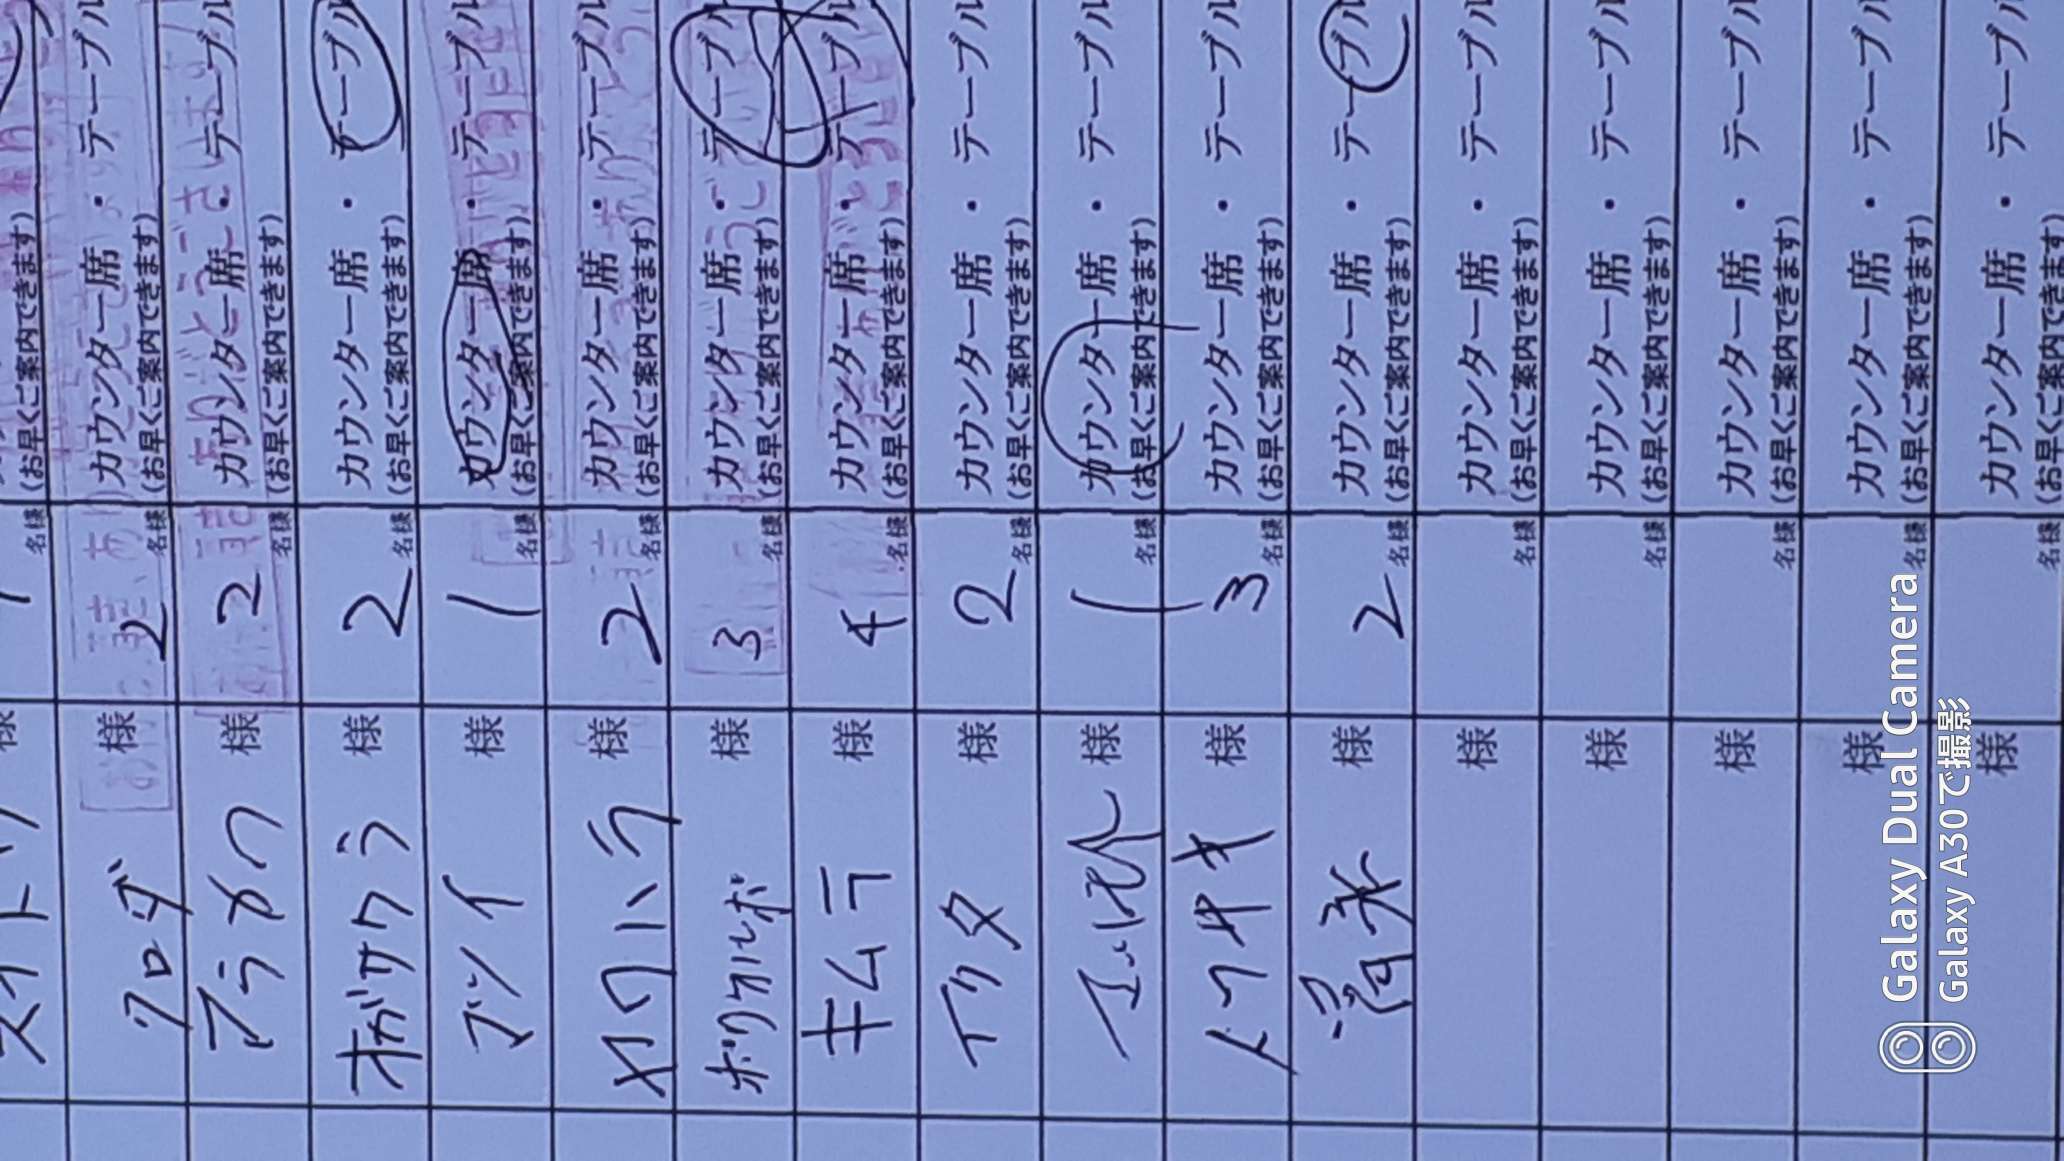 様 1 名様 (お早くご案内できます)
クロダ 様 2 名様 カウンター席 (お早くご案内できます) ・ テーブル
アラカワ 様 2 名様 カウンター席 (お早くご案内できます) ・ テーブル
オガサワラ 様 2 名様 カウンター席 (お早くご案内できます) ・ テーブル
様 1 名様 カウンター席 (お早くご案内できます) ・ テーブル
カワハラ 様 2 名様 カウンター席 (お早くご案内できます) ・ テーブル
様 3 名様 カウンター席 (お早くご案内できます) ・ テーブル
キムラ 様 4 名様 カウンター席 (お早くご案内できます) ・ テーブル
イケタ 様 2 名様 カウンター席 (お早くご案内できます) ・ テーブル
様 1 名様 カウンター席 (お早くご案内できます) ・ テーブル
様 3 名様 カウンター席 (お早くご案内できます) ・ テーブル
様 2 名様 カウンター席 (お早くご案内できます) ・ テーブル
様 名様 カウンター席 (お早くご案内できます) ・ テーブル
様 名様 カウンター席 (お早くご案内できます) ・ テーブル
様 名様 カウンター席 (お早くご案内できます) ・ テーブル
様 名様 カウンター席 (お早くご案内できます) ・ テーブル
様 名様 カウンター席 (お早くご案内できます) ・ テーブル
Galaxy Dual Camera
Galaxy A30で撮影